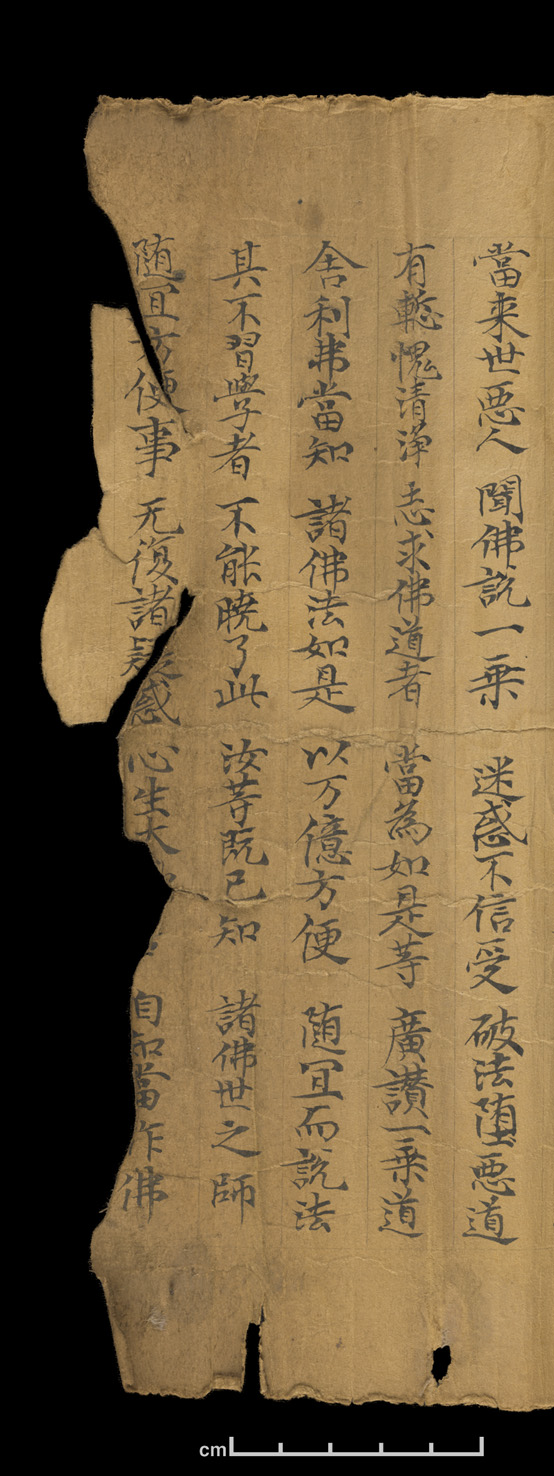 當来世悪人 聞佛説一乗 迷惑不信受 破法堕悪道
有慙愧清淨 志求佛道者 當為如是等 廣讃一乗道
舍利弗當知 諸佛法如是 以万億方便 随冝而説法
其不習學者 不能暁了此 汝等既已知 諸佛世之師
随冝方便事 无復諸疑惑 心生大 自知當作佛
cm